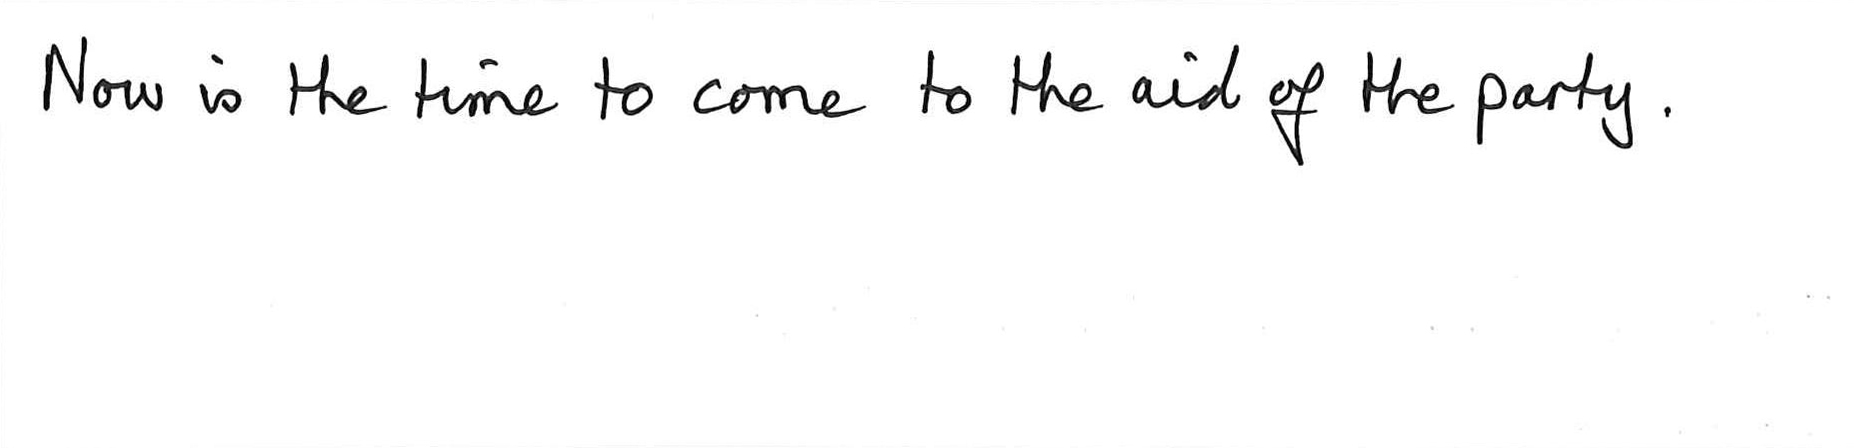 Now is the time to come to the aid of the party.